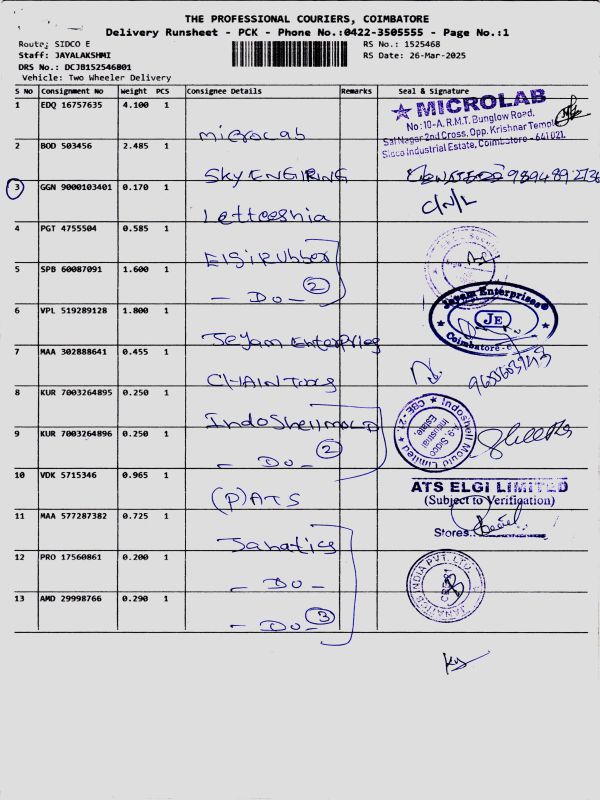 THE PROFESSIONAL COURIERS, COIMBATORE
Delivery Runsheet - PCK - Phone No.:0422-3505555 - Page No.:1
Route: SIDCO E RS No.: 1525468
Staff: JAYALAKSHMI RS Date: 26-Mar-2025
DRS No.: DCJB152546801
Vehicle: Two Wheeler Delivery
S No Consignment No Weight PCS Consignee Details Remarks Seal & Signature
1 EDQ 16757635 4.100 1 microlab
MICROLAB
No:10-A, R.M.T. Bunglow Road,
Sai Nagar 2nd Cross, Opp. Krishnar Temple
Sidco Industrial Estate, Coimbatore - 641 021.
2 BOD 503456 2.485 1 Sky ENGIRING 9894892736
3 GGN 9000103401 0.170 1 C/N/L
4 PGT 4755504 0.585 1 Elgi Rubber
5 SPB 60087091 1.600 1 - Do - 2
6 VPL 519289128 1.800 1 Jeyam Enterpries
Jayam Enterprises
JE
Coimbatore
7 MAA 302888641 0.455 1 CHAIN
8 KUR 7003264895 0.250 1 IndoShell MOLD
9 KUR 7003264896 0.250 1 - Do - 2
Indoshell Mould Limited
CBE-21.
Sidco Industrial Estate,
10 VDK 5715346 0.965 1 (P) ATS
ATS ELGI LIMITED
(Subject to Verification)
Stores
11 MAA 577287382 0.725 1 Janatics
12 PRO 17560861 0.200 1 - Do -
13 AMD 29998766 0.290 1 - Do - 3
JANATICS INDIA PVT. LTD.